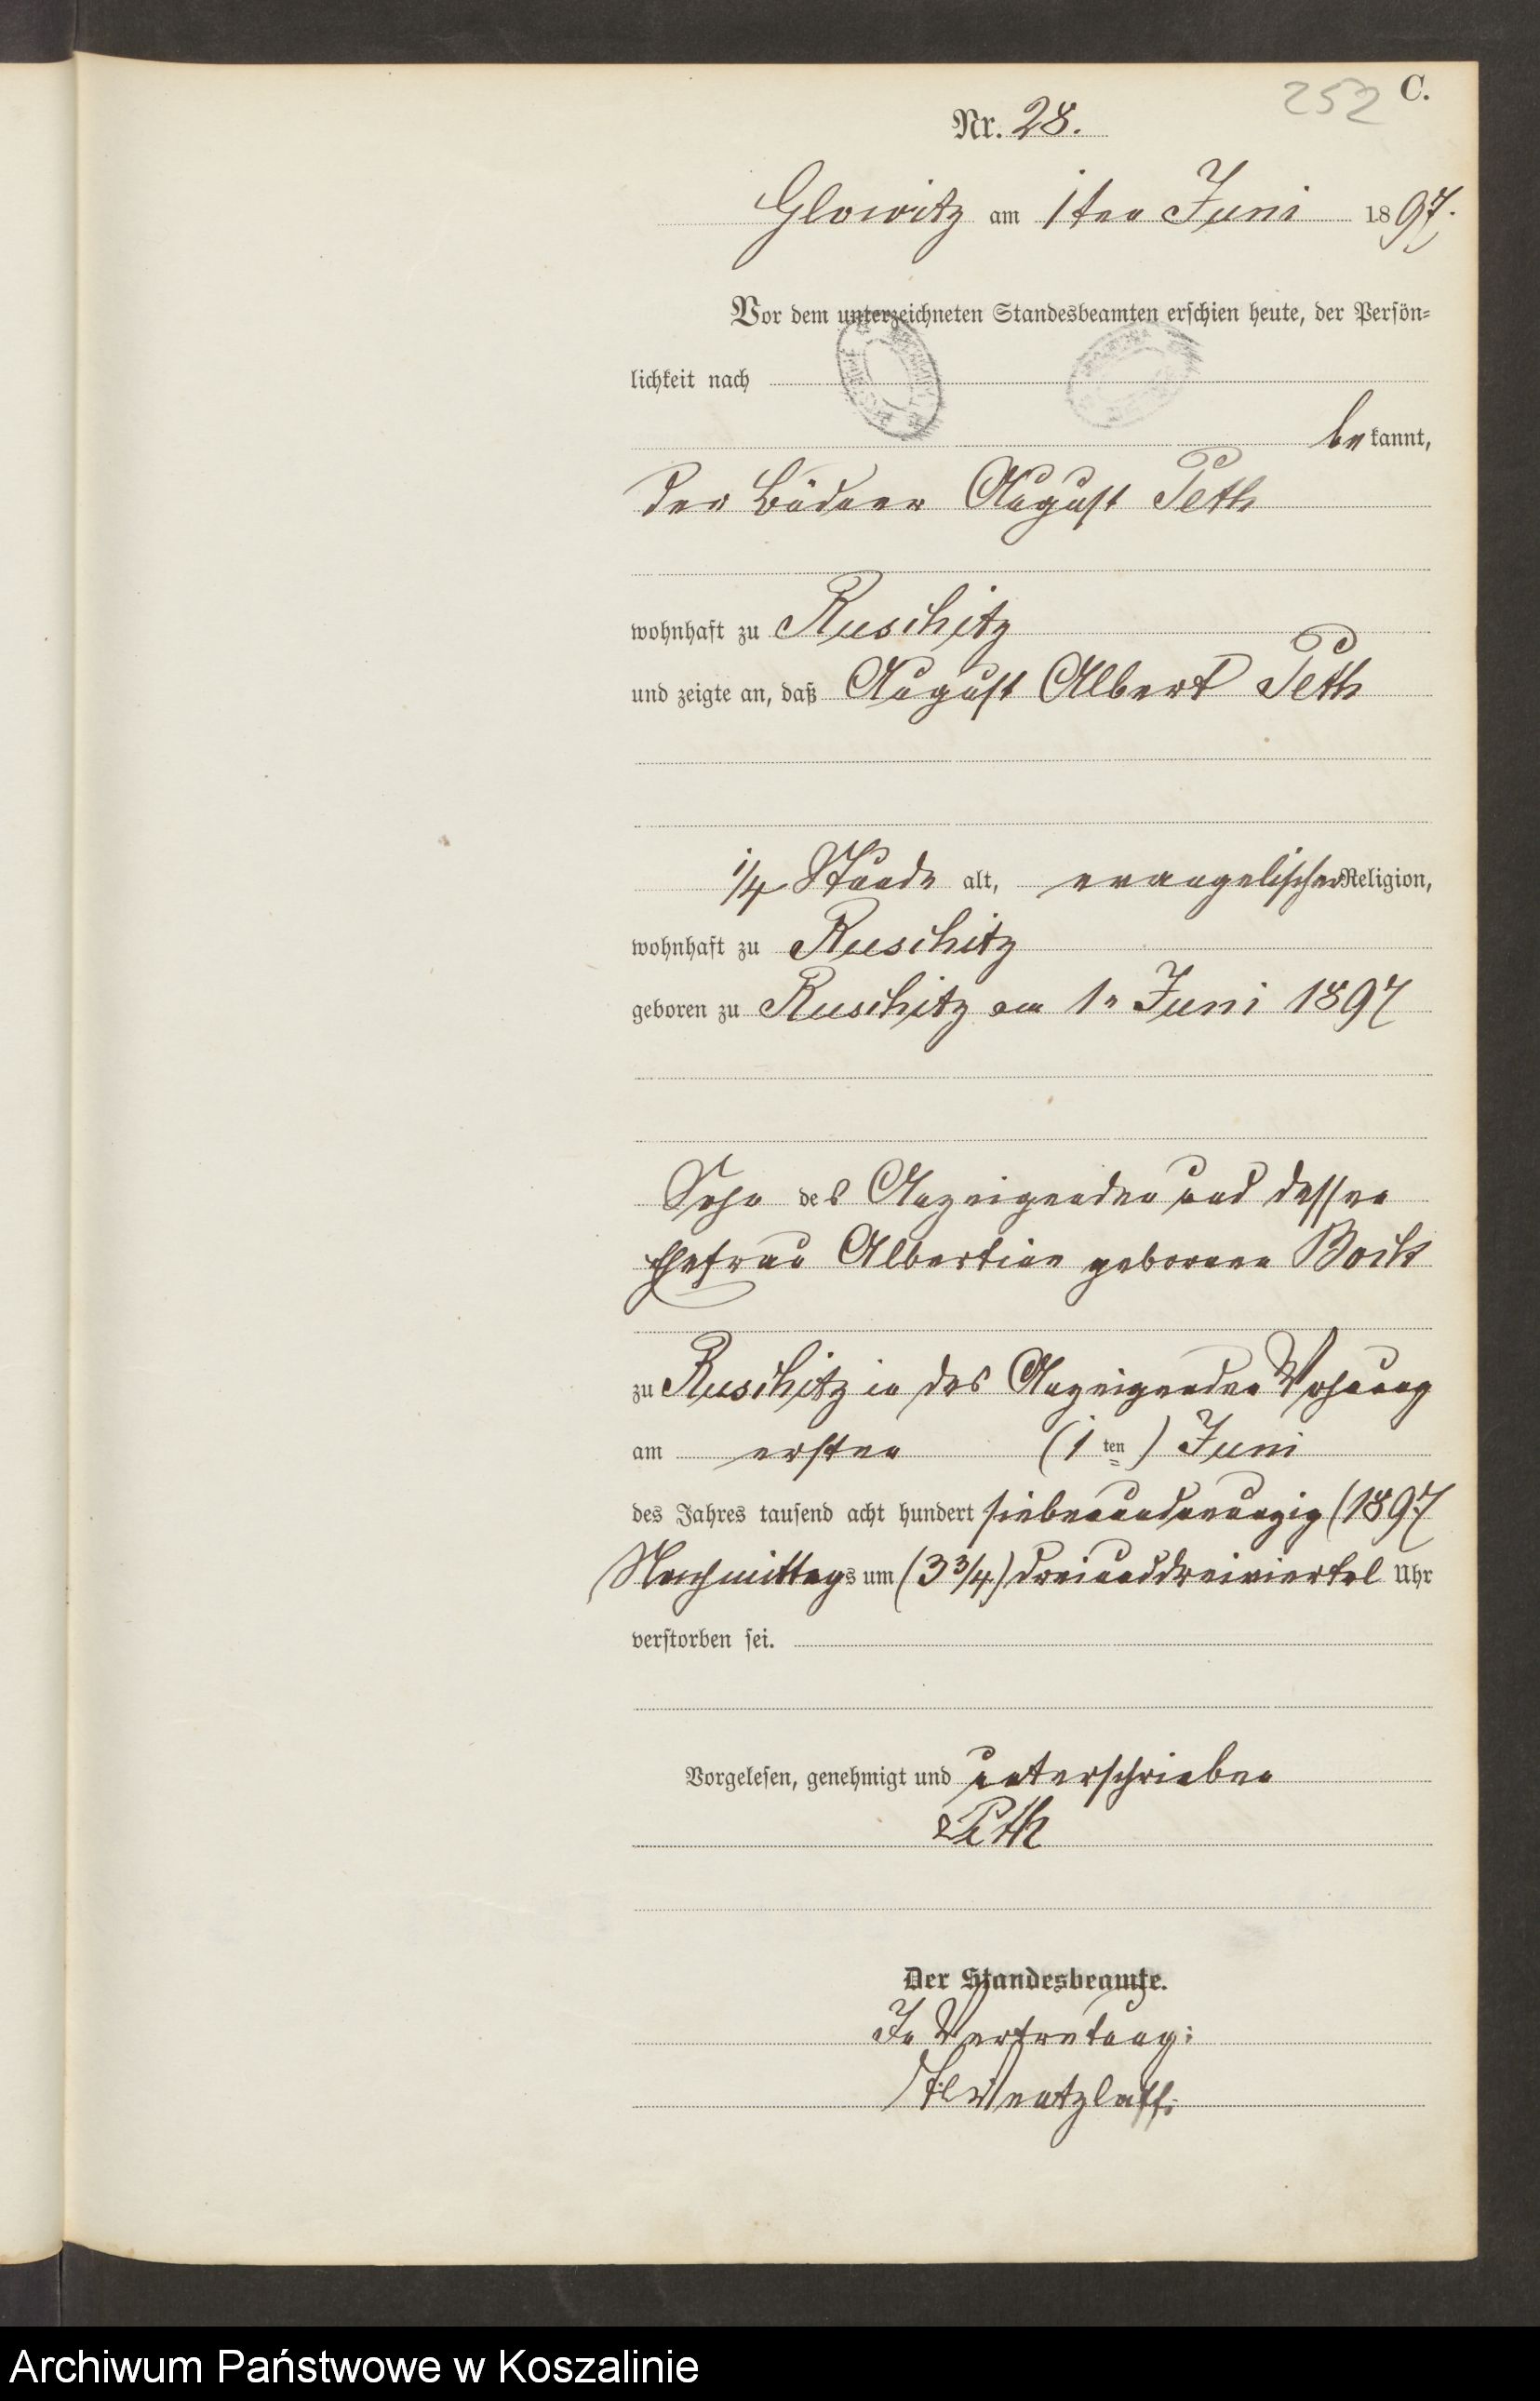 252 C.
Nr. 28.
Glowitz am 1ten Juni 1897.
Vor dem unterzeichneten Standesbeamten erschien heute, der Persön=
lichkeit nach
bekannt,
der Büdner August Peth
wohnhaft zu Ruschitz
und zeigte an, daß August Albert Peth
1/4 Stunde alt, evangelischer Religion,
wohnhaft zu Ruschitz
geboren zu Ruschitz am 1n Juni 1897
Sohn des Anzeigenden und dessen
Ehefrau Albertine geborene Bock
zu Ruschitz in des Anzeigenden Wohnung
am ersten (1 ten) Juni
des Jahres tausend acht hundert siebenundneunzig (1897
Nachmittags um (3 3/4) dreiunddreiviertel Uhr
verstorben sei.
Vorgelesen, genehmigt und unterschrieben
Peth
Der Standesbeamte.
In Vertretung:
Wentzlaff.
Archiwum Państwowe w Koszalinie